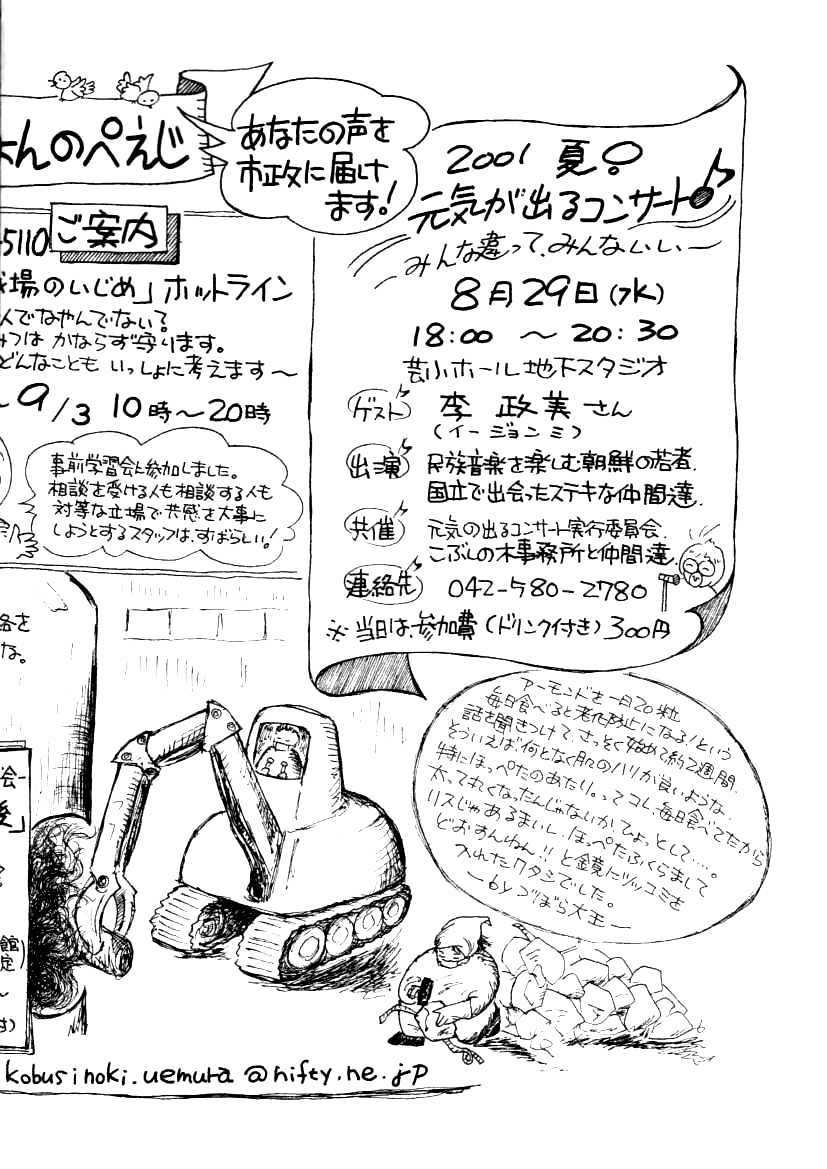 んのぺえじ
あなたの声を
市政に届け
ます!
5110
ご案内
場のいじめ」ホットライン
人でなやんでない?
みつは かならず守ります。
どんなことも いっしょに考えます〜
〜9/3 10時〜20時
事前学習会に参加しました。
相談を受ける人も相談する人も
対等な立場で共感を大事に
しようとするスタッフは、すばらしい!
2001 夏。
元気が出るコンサート♪
みんな違って、みんないい〜
8月29日(水)
18:00 〜 20:30
芸小ホール地下スタジオ
ゲスト 李 政美さん
(イージョンミ)
出演 民族音楽を楽しむ朝鮮の若者、
国立で出会ったステキな仲間達、
共催 元気の出るコンサート実行委員会、
こぶしの木事務所と仲間達、
連絡先 042-580-2780
※当日は、参加費(ドリンク付き)300円
絡を
な。
アーモンドを一日20粒
毎日食べると老化防止になる!という
話を聞きつけて、さっそく始めて約2週間、
そういえば何となく肌のハリが良いような、
特にほっぺたのあたり。ってコレ、毎日食べてたから
太ってれくなったんじゃないか、ひょっとして‥‥。
リスじゃあるまいし、ほっぺたふくらまして
どおすんねん!!と鏡にツッコミを
入れたワタシでした。
ーbyゴぼら大王ー
会ー
後」
館)
定)
〜
す)
kobusinoki.uemura@nifty.ne.jp